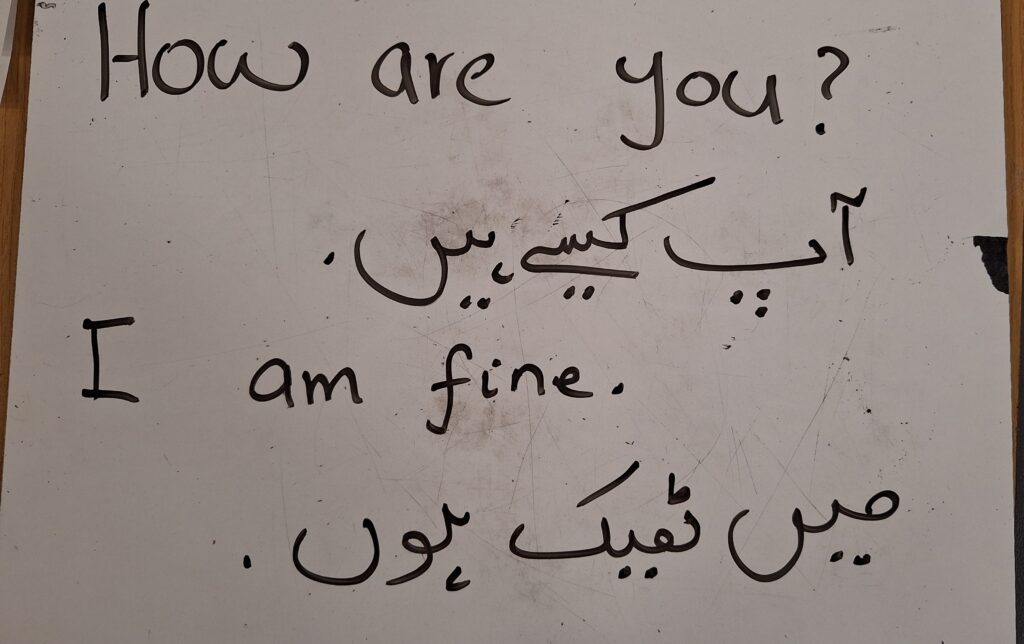 How are you?
آپ کیسے ہیں.
I am fine.
میں ٹھیک ہوں.